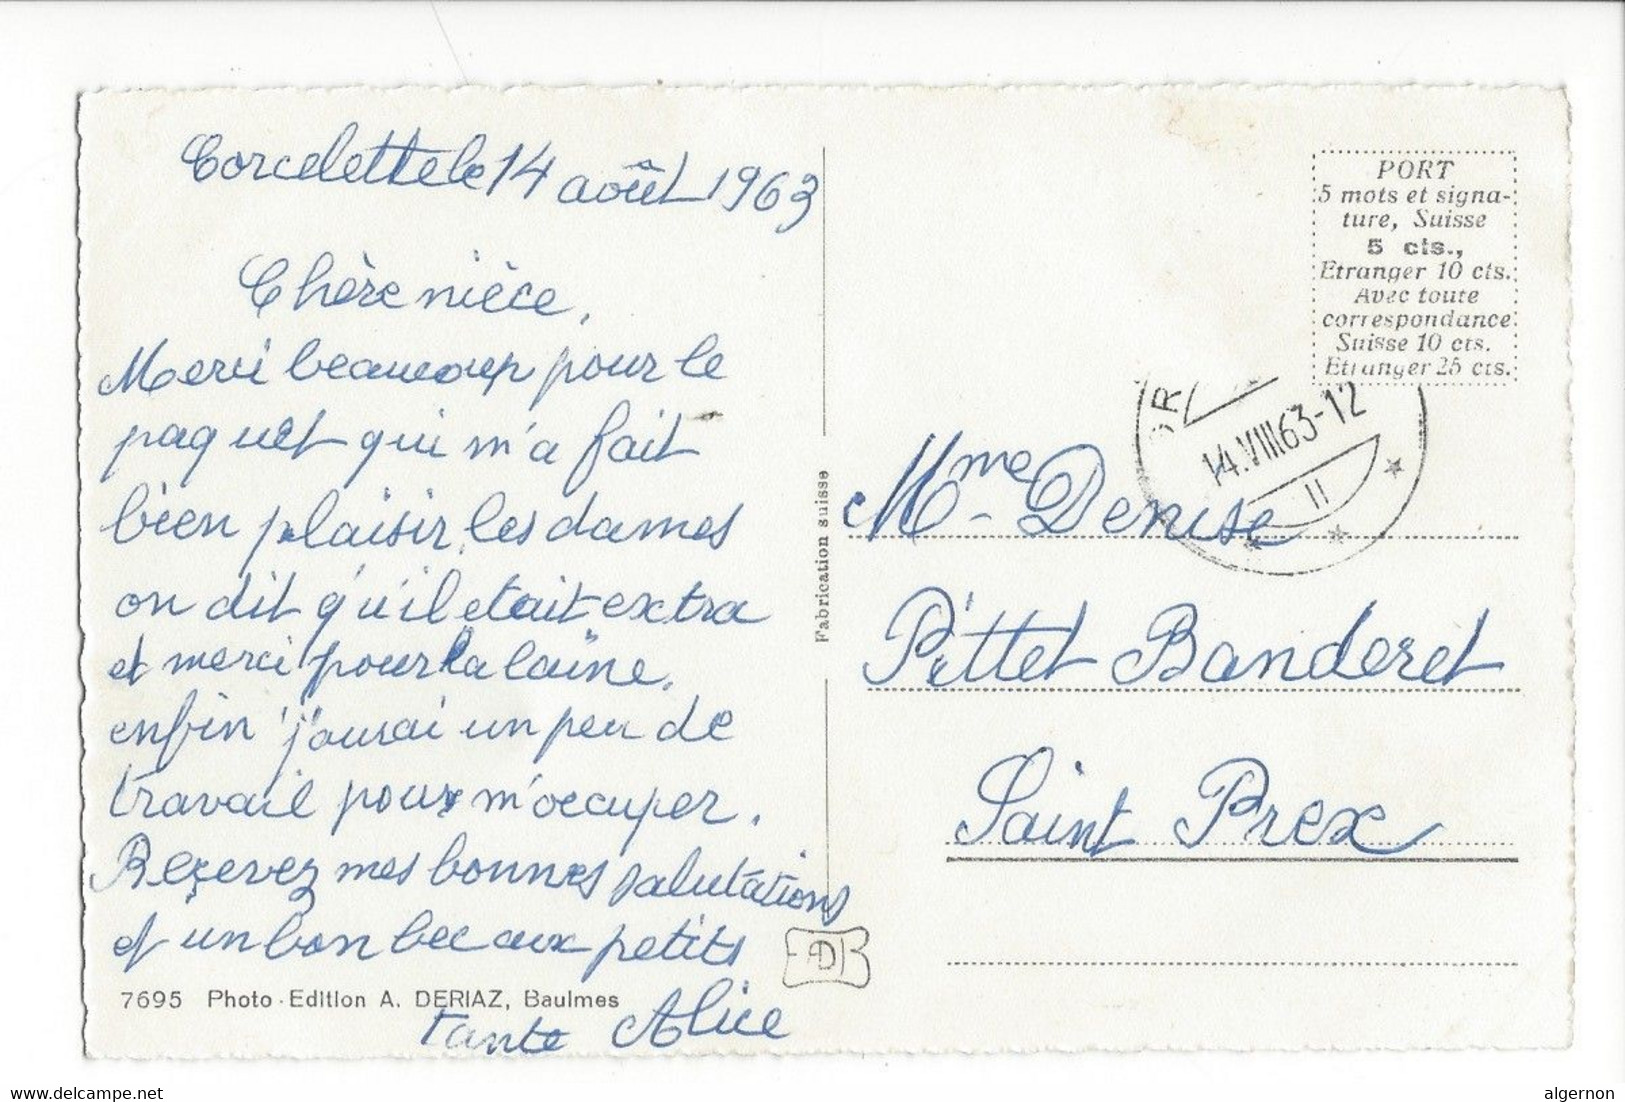 Corcelette le 14 août 1963
Chère nièce,
Merci beaucoup pour le
paquet qui m'a fait
bien plaisir, les dames
on dit qu'il etait extra
et merci pour la laine.
enfin j'aurai un peu de
travail pour m'occuper.
Reçevez mes bonnes salutations
et un bon bec aux petits
Tante Alice
7695 Photo-Edition A. DERIAZ, Baulmes
Fabrication suisse
PORT
5 mots et signa-
ture, Suisse
5 cts.,
Etranger 10 cts.
Avec toute
correspondance
Suisse 10 cts.
Etranger 25 cts.
14.VIII.63-12
II
Mme Denise
Pittet Banderet
Saint Prex
www.delcampe.net
algernon